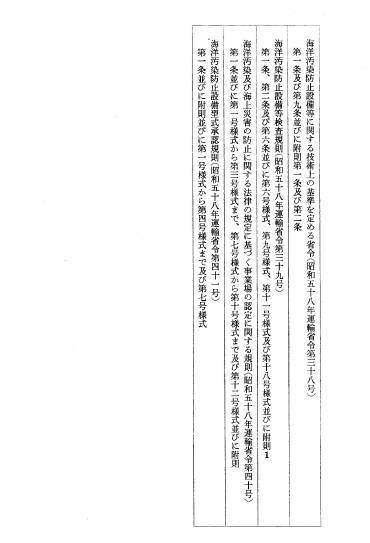 海洋汚染防止設備等に関する技術上の基準を定める省令(昭和五十八年運輸省令第三十八号)
第一条及び第九条並びに附則第一条及び第二条
海洋汚染防止設備等検査規則(昭和五十八年運輸省令第三十九号)
第一条、第二条及び第六条並びに第六号様式、第九号様式、第十一号様式及び第十八号様式並びに附則1
海洋汚染及び海上災害の防止に関する法律の規定に基づく事業場の認定に関する規則(昭和五十八年運輸省令第四十号)
第一条並びに第一号様式から第三号様式まで、第七号様式から第十号様式まで及び第十二号様式並びに附則
海洋汚染防止設備型式承認規則(昭和五十八年運輸省令第四十一号)
第一条並びに附則並びに第一号様式から第四号様式まで及び第七号様式